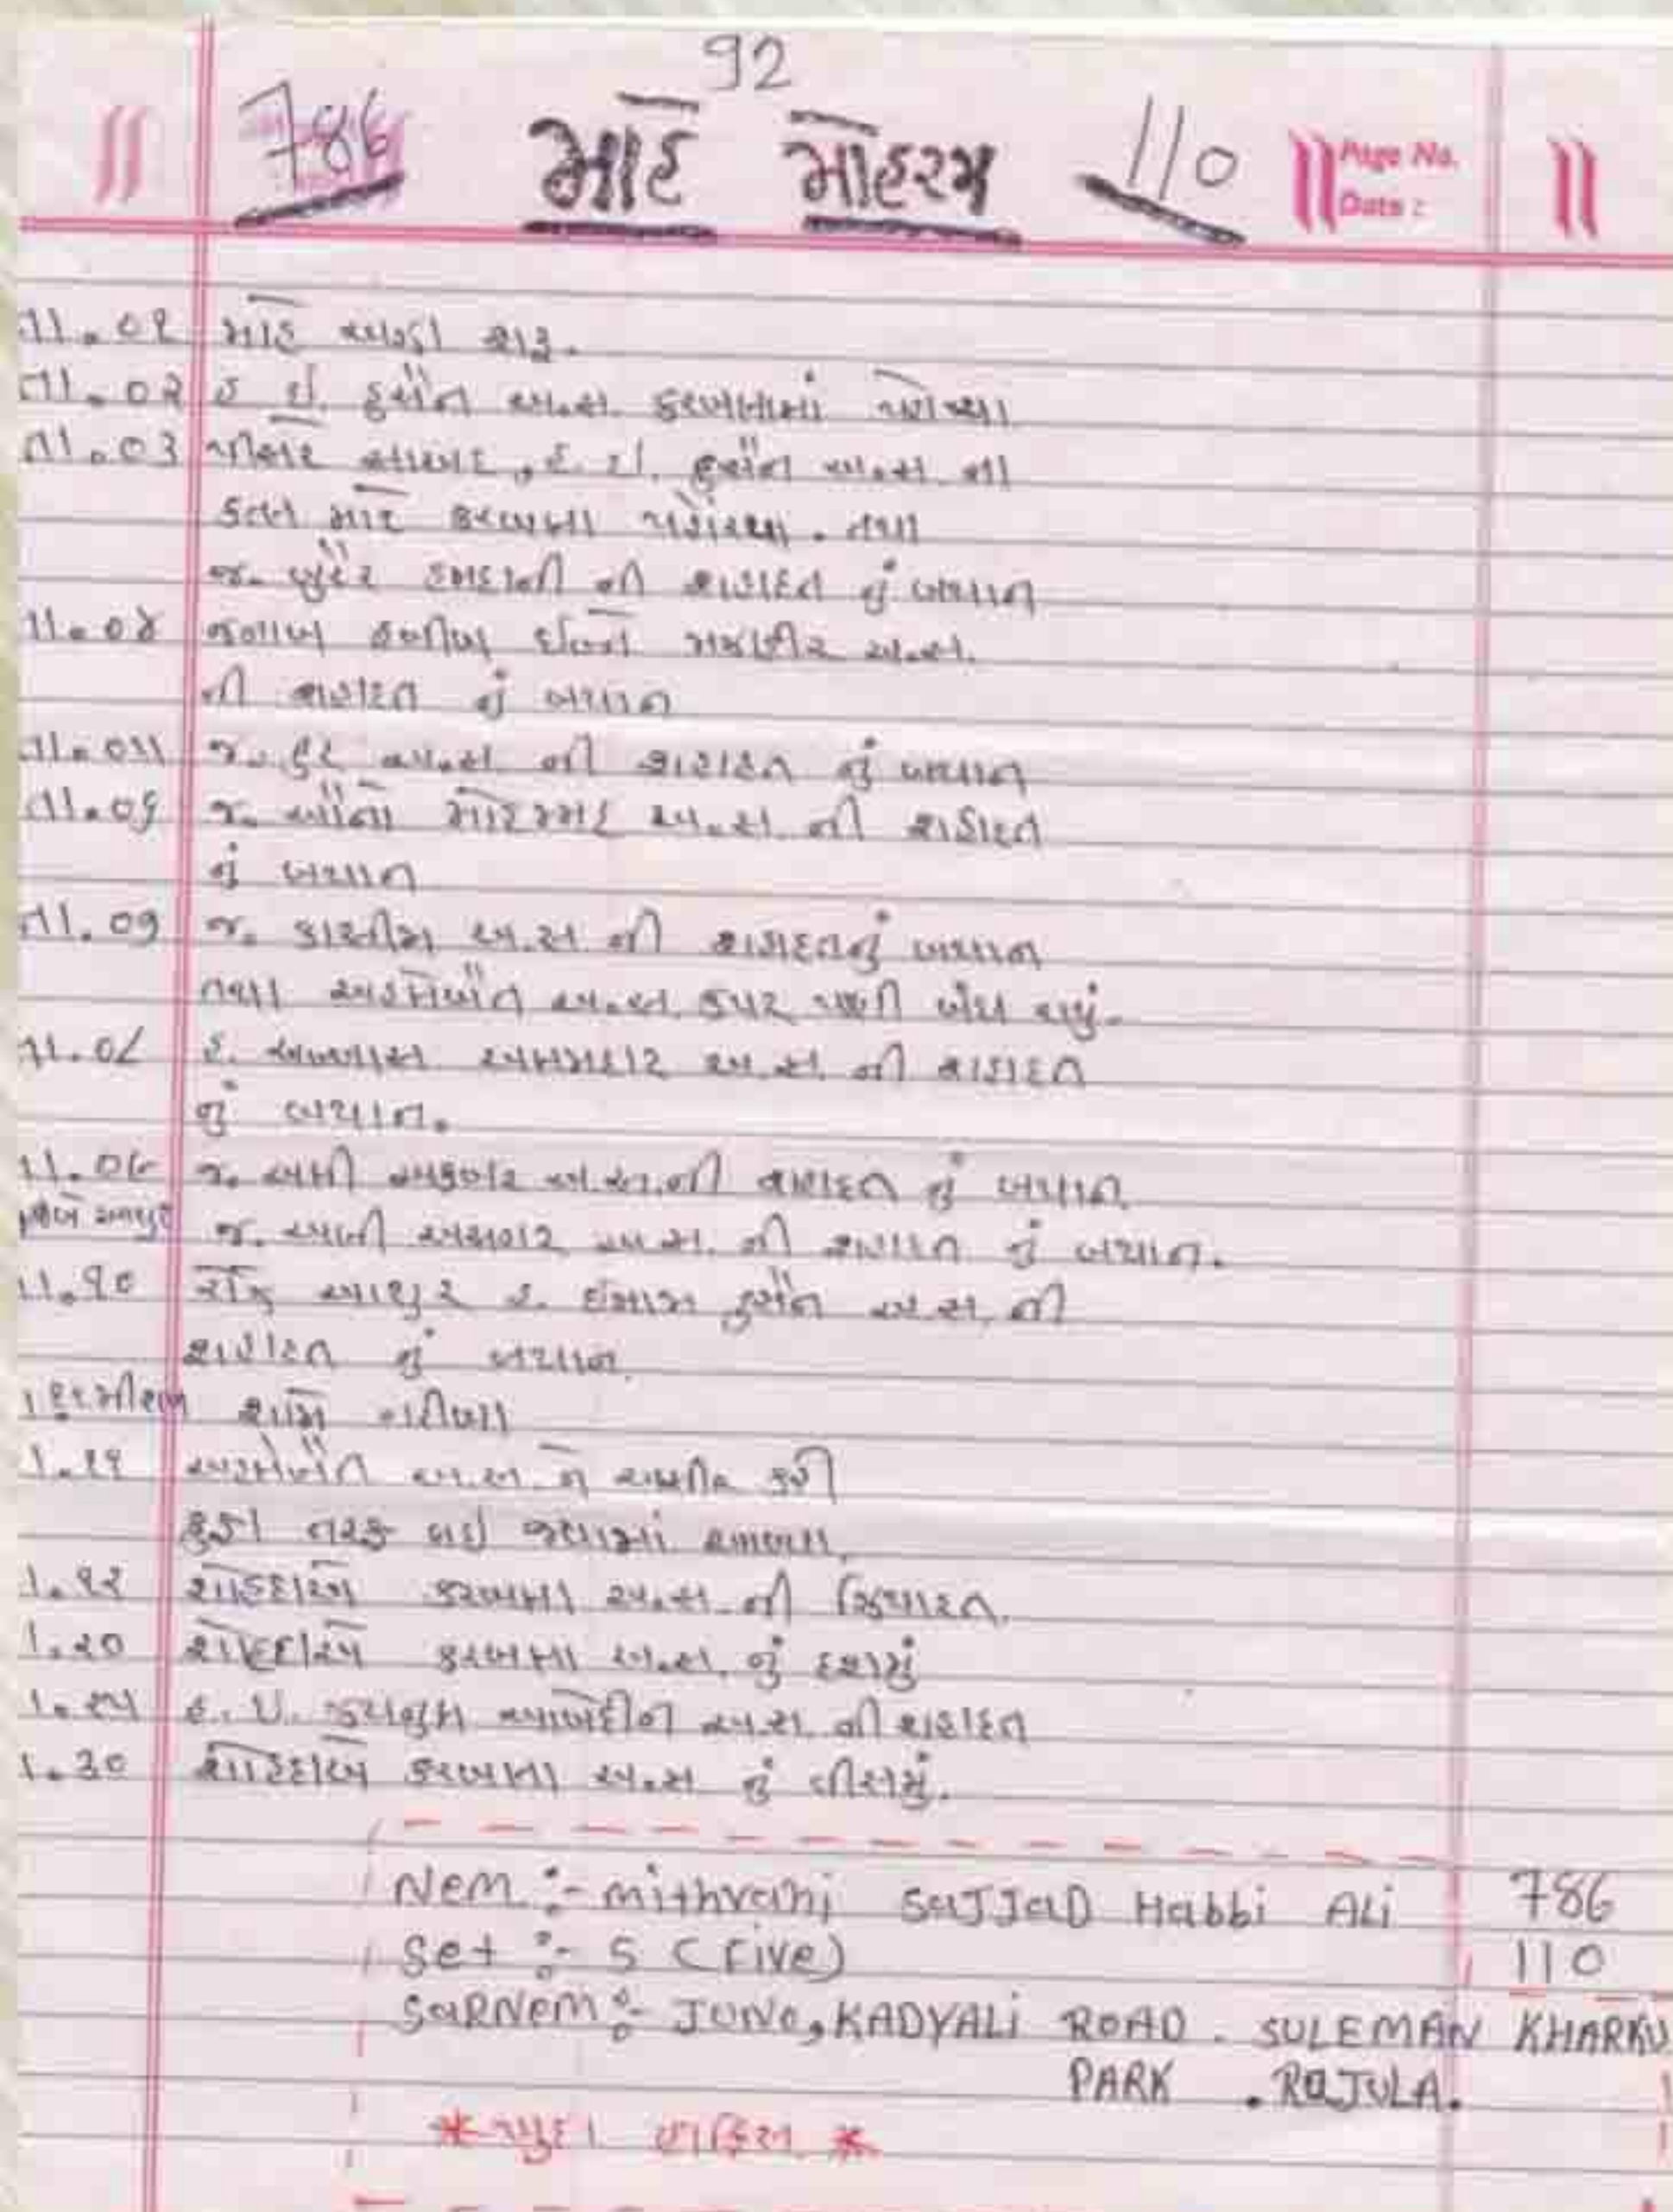 92
786 માહે મોહરમ 110
Page No.
Date :
તા.૦૧ માહે અઝા શરૂ.
તા.૦૨ હ. ઈ. હુસૈન અ.સ. કરબલામાં પહોંચ્યા
તા.૦૩ હ. ઈ. હુસૈન અ.સ. ના
કતલ માટે કરબલા પહોંચ્યા. તથા
જ. બુરૈર હમદાની ની શહાદત નું બયાન
તા.૦૪ જનાબ હબીબ ઈબ્ને મઝાહીર અ.સ.
ની શહાદત નું બયાન
તા.૦૫ જ. હુર અ.સ. ની શહાદત નું બયાન
તા.૦૬ જ. ઔનો મોહમ્મદ અ.સ. ની શહાદત
નું બયાન
તા.૦૭ જ. કાસીમ અ.સ. ની શહાદતનું બયાન
તથા અહલેબૈત અ.સ. ઉપર પાણી બંધ થયું.
તા.૦૮ હ. અબ્બાસ અલમદાર અ.સ. ની શહાદત
નું બયાન.
તા.૦૯ જ. અલી અકબર અ.સ. ની શહાદત નું બયાન.
શબે આશુર જ. અલી અસગર અ.સ. ની શહાદત નું બયાન.
તા.૧૦ રોઝે આશુર હ. ઈમામ હુસૈન અ.સ. ની
શહાદત નું બયાન.
શામે ગરીબા
તા.૧૧ અહલેબૈત અ.સ. ને કરી
કુફા તરફ લઇ જવામાં આવ્યા.
તા.૧૨ શોહદાએ કરબલા અ.સ. ની ઝિયારત.
તા.૨૦ શોહદાએ કરબલા અ.સ. નું દશમું
તા.૨૫ હ. ઈ. ઝયનુલ આબેદીન અ.સ. ની શહાદત
તા.૩૦ શોહદાએ કરબલા અ.સ. નું વીસમું.
Nem :- mithvani SaJJaD Habbi ALi 786
Set :- 5 (Five) 110
SaRNem :- JUNO, KADYALi ROAD. SULEMAN KHARKU
PARK . RaJULA.
* ખુદા હાફિઝ *